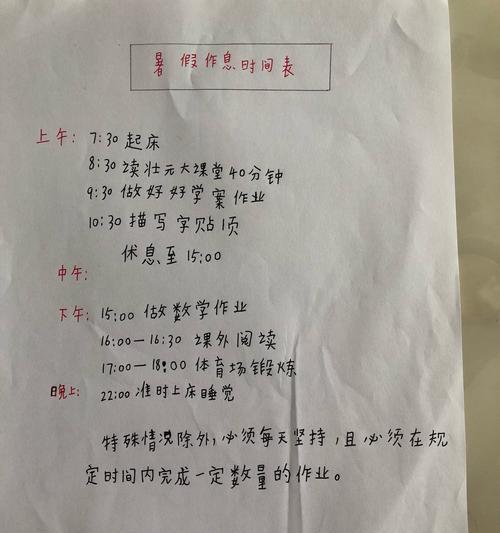 暑假作息时间表
上午: 7:30 起床
8:30 读壮元大课堂 40分钟
9:30 做好好学案作业
10:30 描写字贴1页
休息至 15:00
中午:
下午: 15:00 做数学作业
16:00—16:30 课外阅读
17:00—18:00 体育场锻炼
晚上: 22:00 准时上床睡觉
特殊情况除外,必须每天坚持,且必须在规
定时间内完成一定数量的作业。